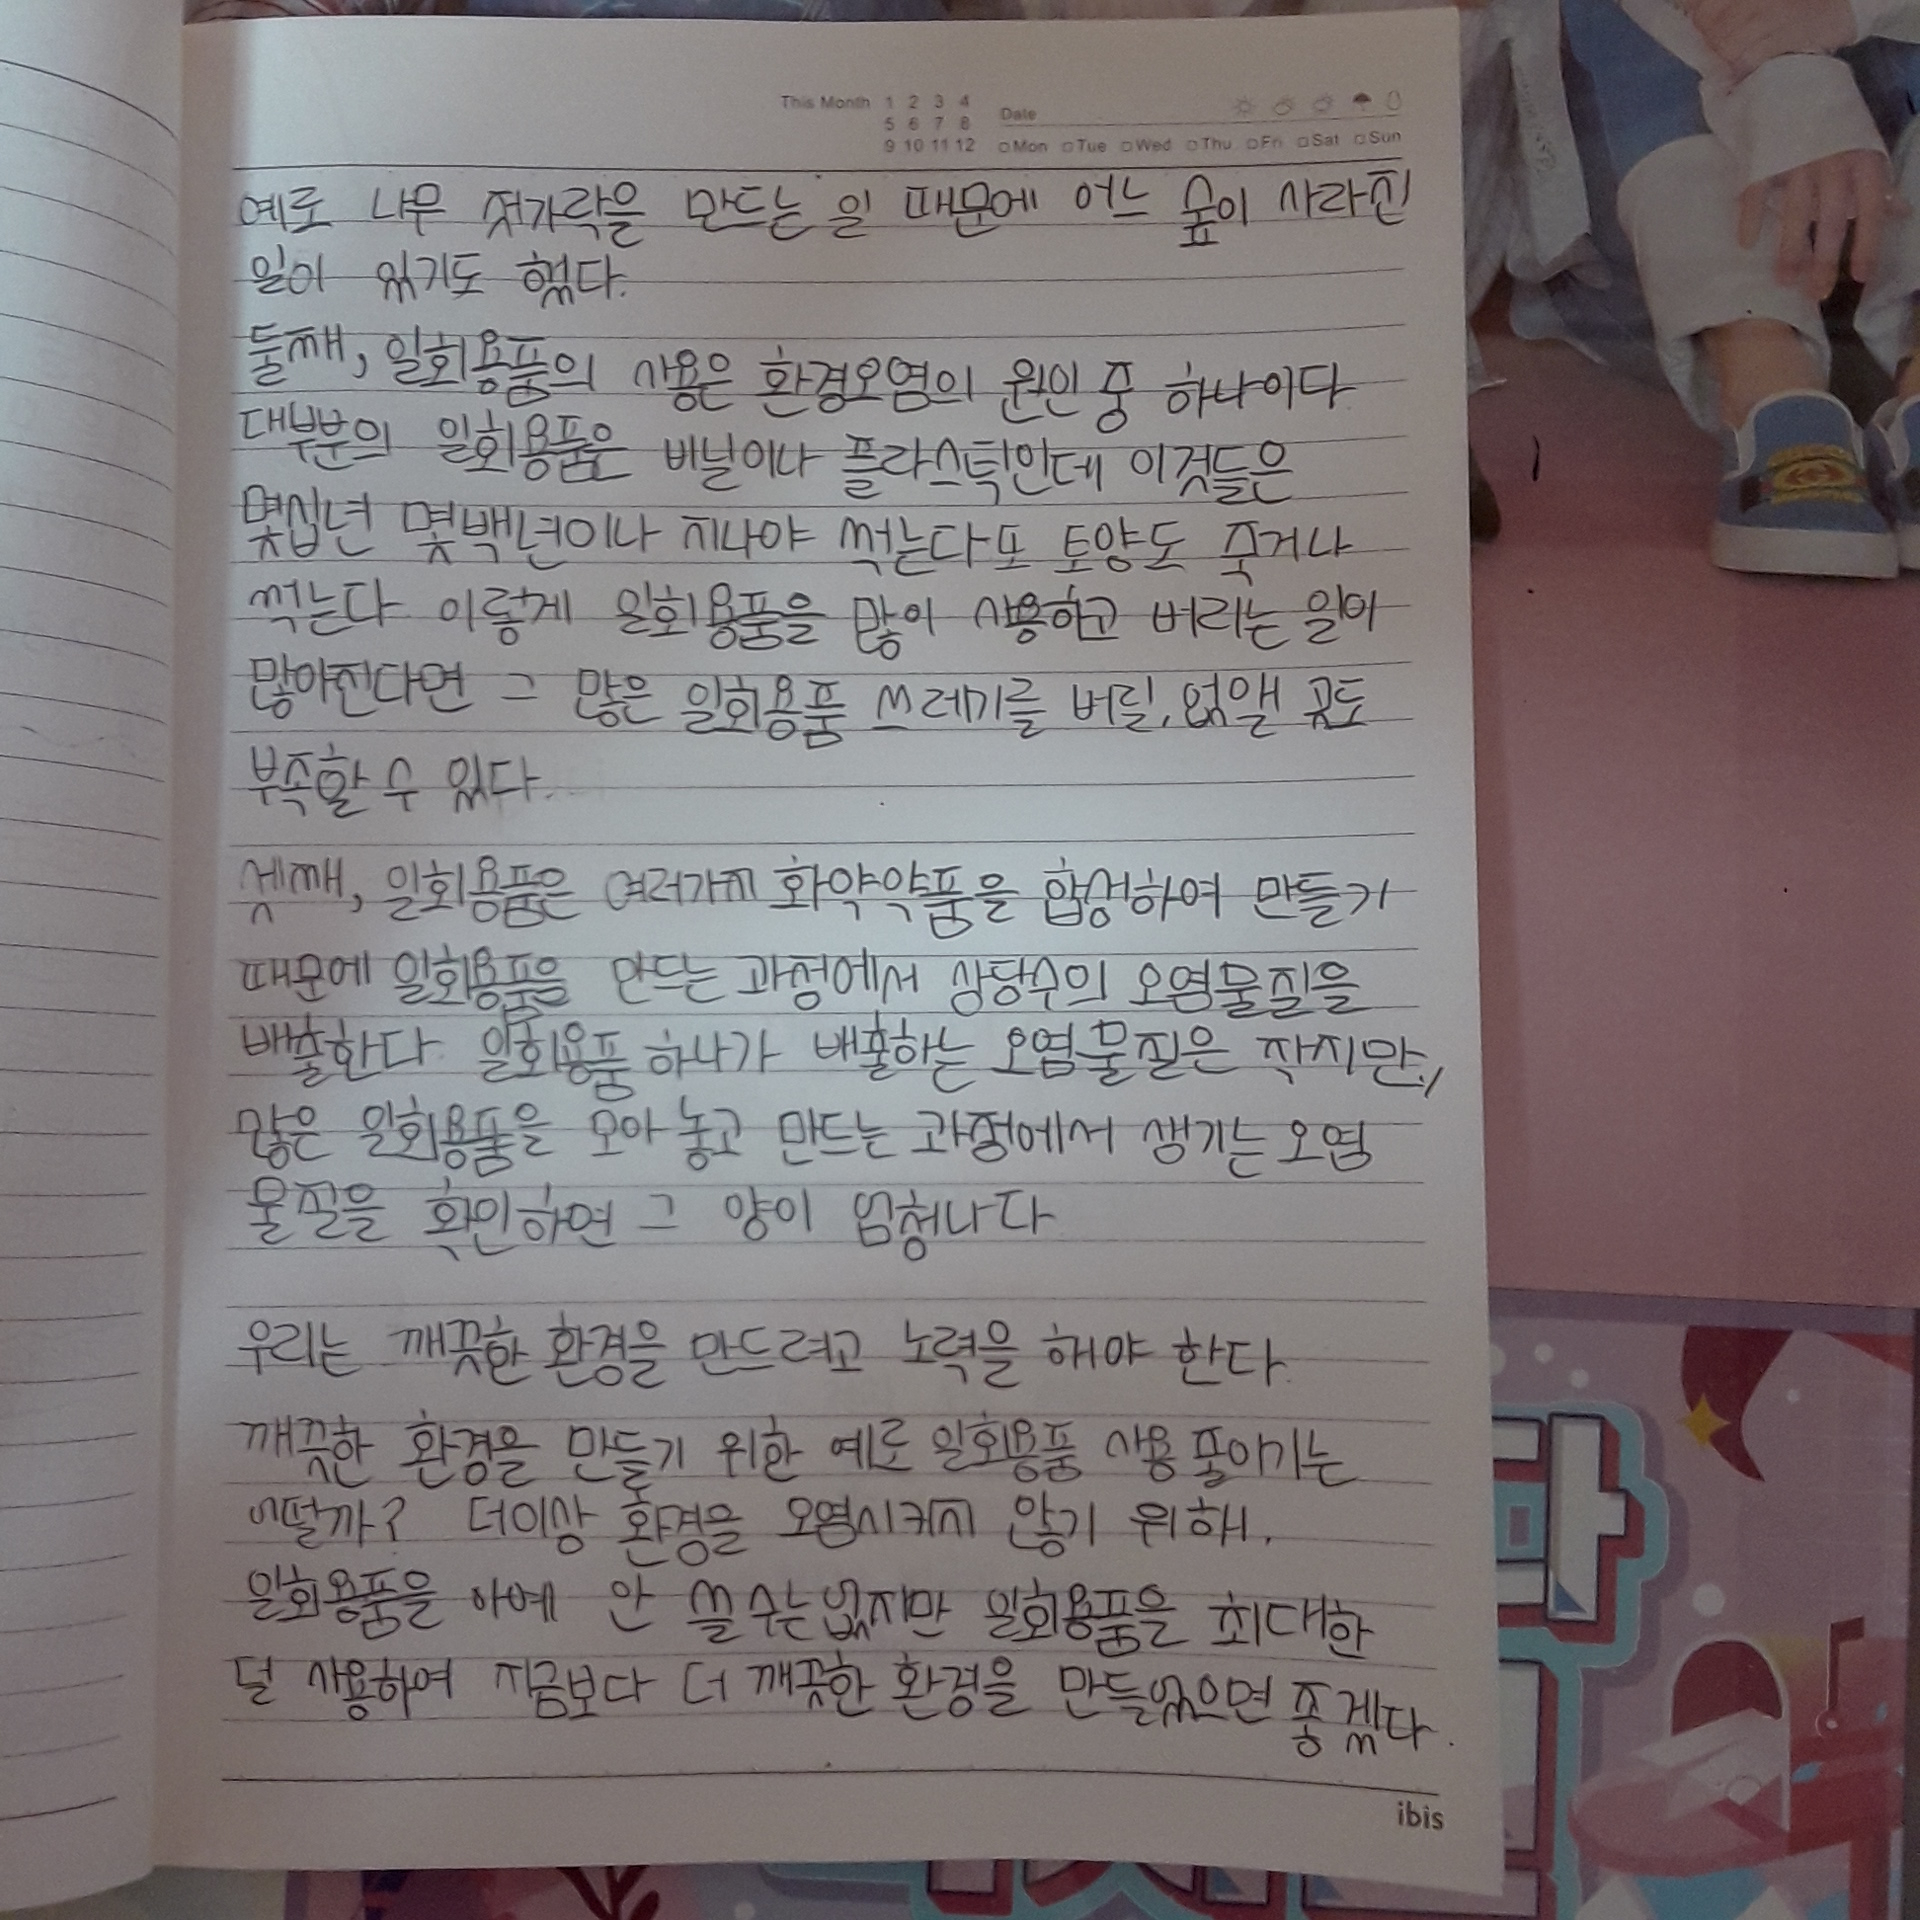 This Month 1 2 3 4
5 6 7 8
9 10 11 12
Date
Mon Tue Wed Thu Fri Sat Sun
예로 나무 젓가락을 만드는 일 때문에 어느 숲이 사라진
일이 있기도 했다.
둘째, 일회용품의 사용은 환경오염의 원인 중 하나이다
대부분의 일회용품은 비닐이나 플라스틱인데 이것들은
몇십년 몇백년이나 지나야 썩는다 또 토양도 죽거나
썩는다 이렇게 일회용품을 많이 사용하고 버리는 일이
많아진다면 그 많은 일회용품 쓰레기를 버릴, 없앨 곳도
부족할 수 있다.
셋째, 일회용품은 여러가지 화약약품을 합성하여 만들기
때문에 일회용품을 만드는 과정에서 상당수의 오염물질을
배출한다 일회용품 하나가 배출하는 오염물질은 작지만,
많은 일회용품을 모아 놓고 만드는 과정에서 생기는 오염
물질을 확인하면 그 양이 엄청나다
우리는 깨끗한 환경을 만드려고 노력을 해야 한다.
깨끗한 환경을 만들기 위한 예로 일회용품 사용 줄이기는
어떨까? 더이상 환경을 오염시키지 않기 위해.
일회용품을 아예 안 쓸 수는 없지만 일회용품을 최대한
덜 사용하여 지금보다 더 깨끗한 환경을 만들었으면 좋겠다.
ibis